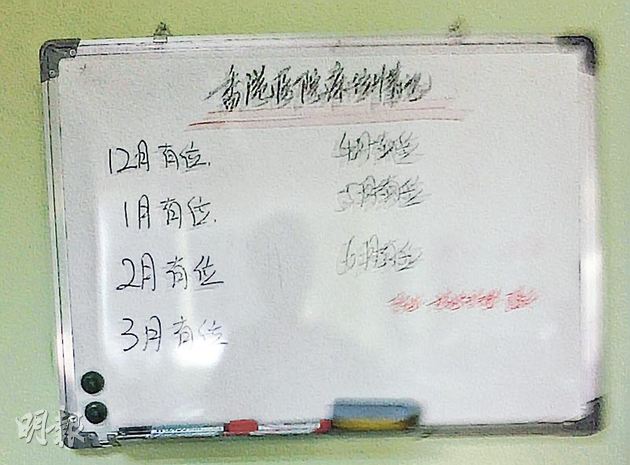 香港医院床位情况
12月有位.
1月有位.
2月有位
3月有位
4月有位
5月有位
6月有位
明報